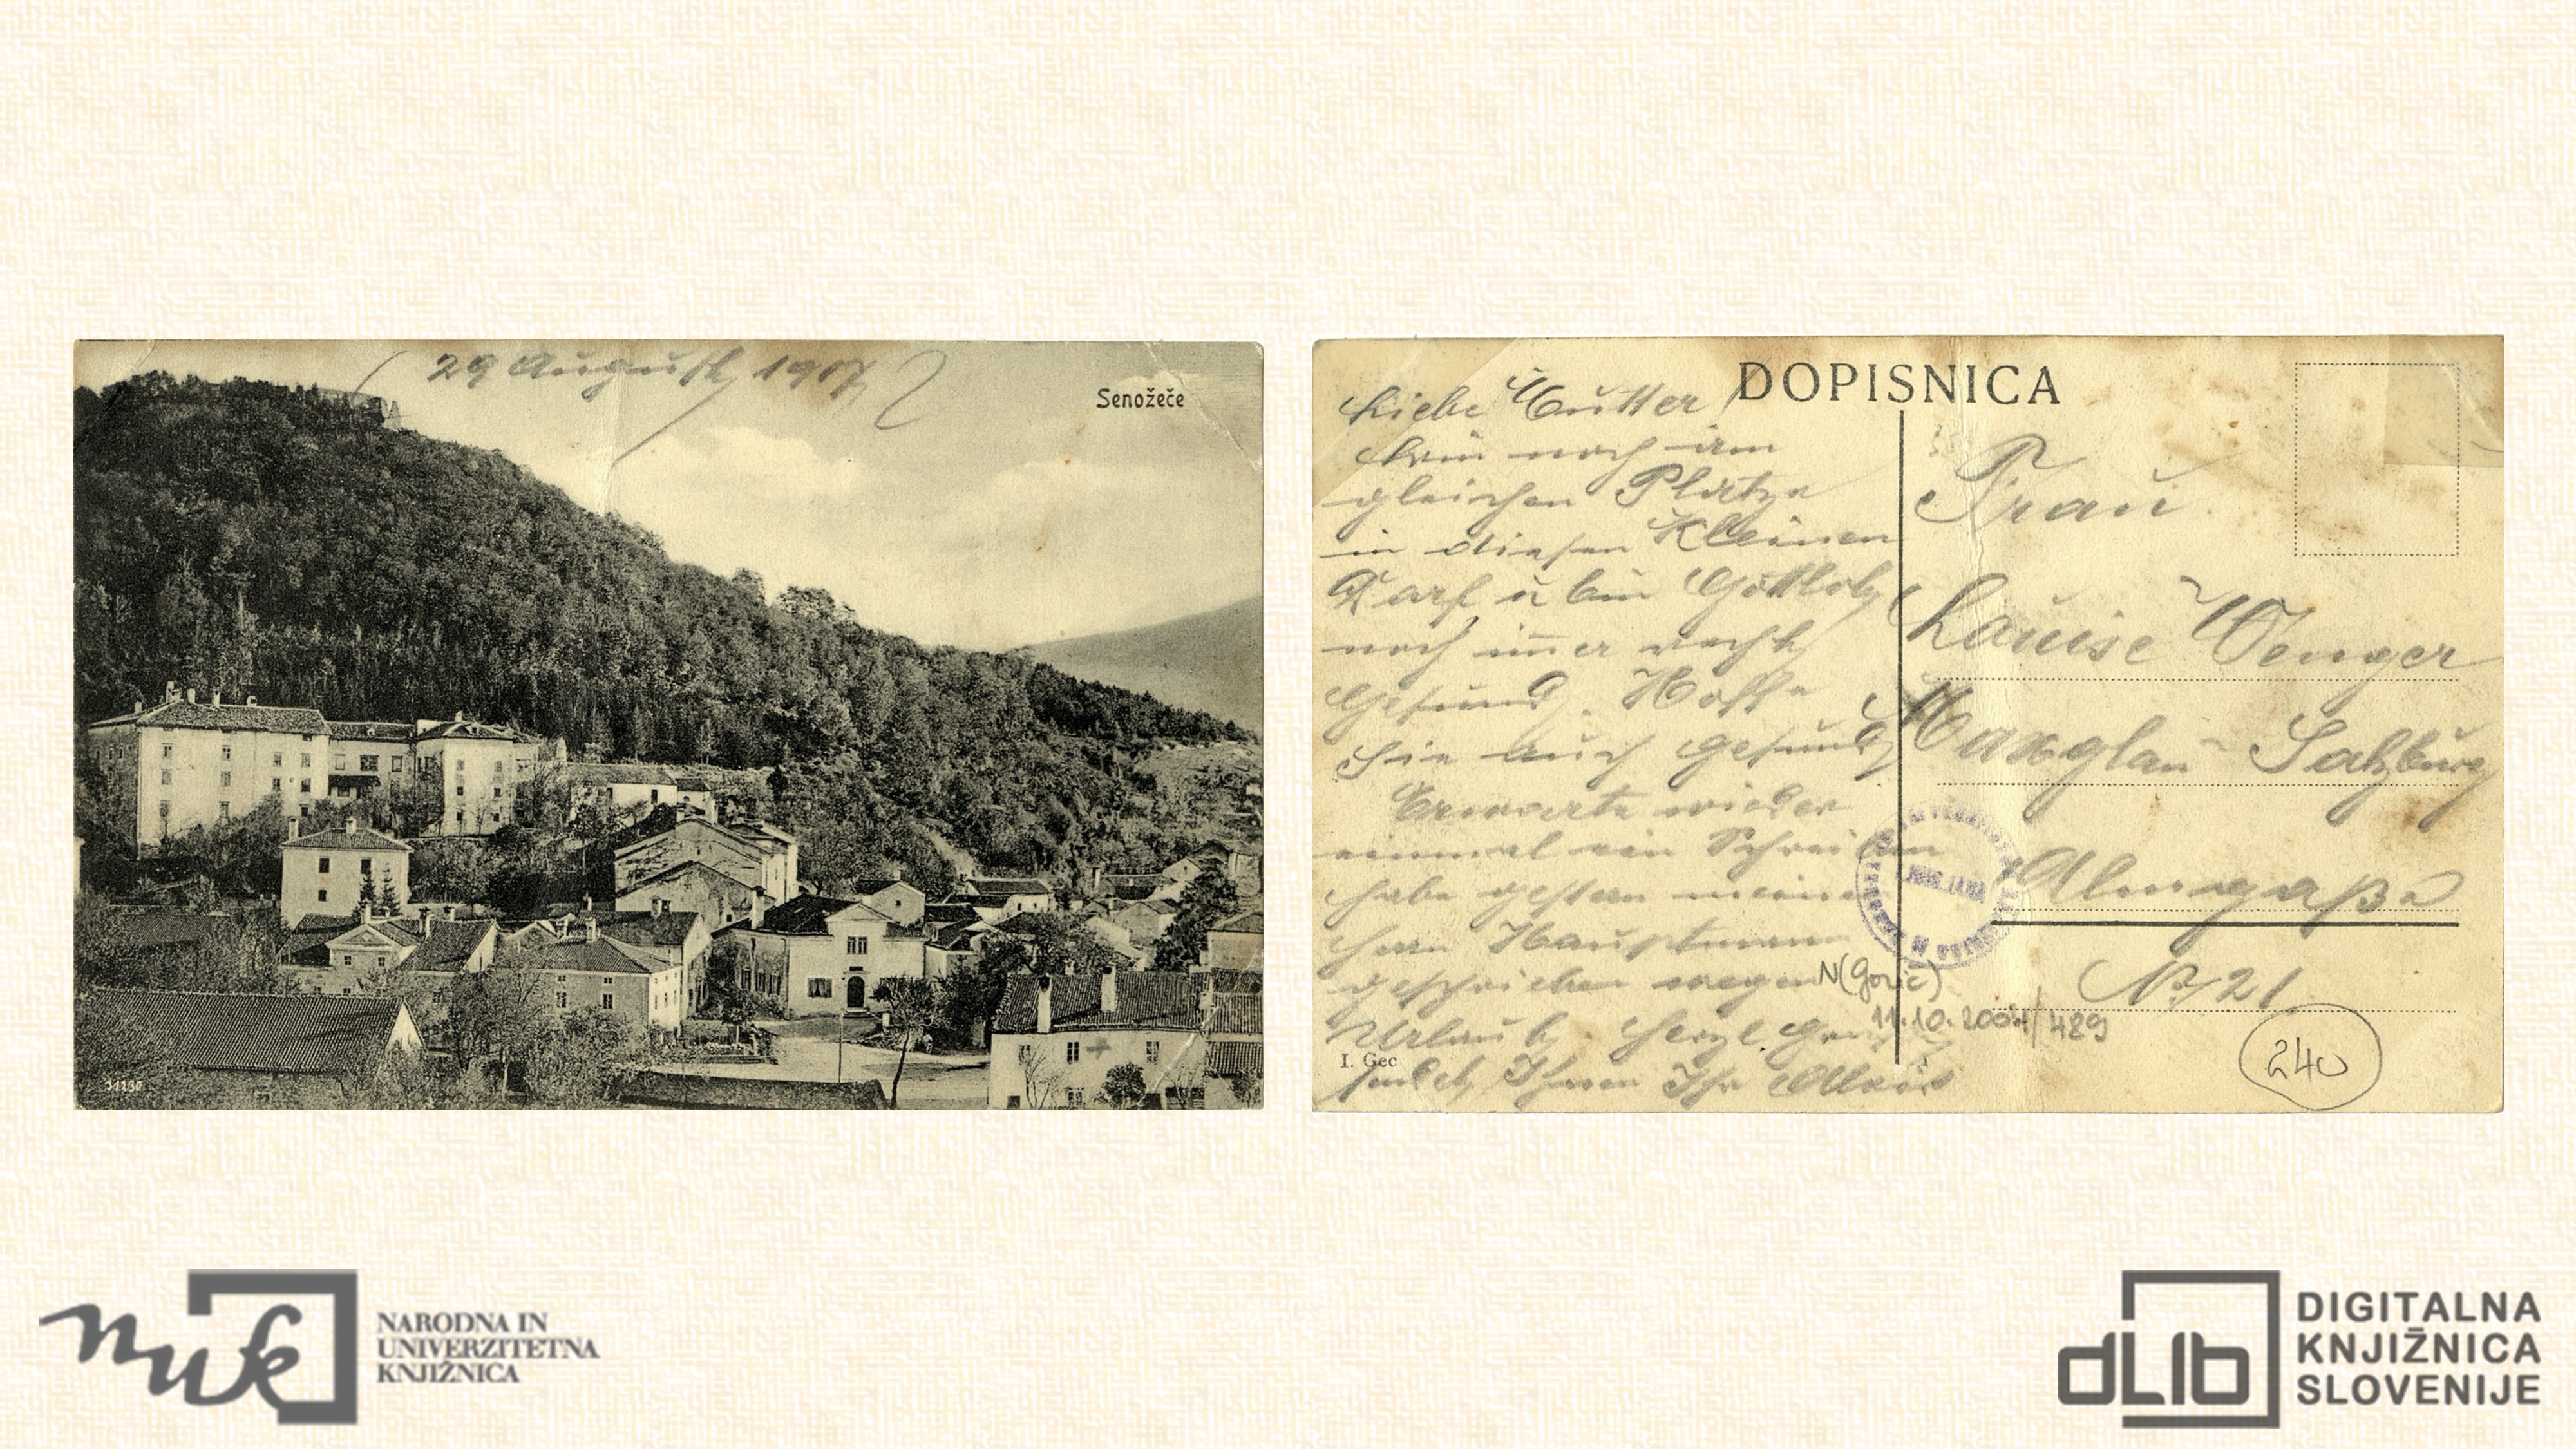 29 August 1917
Senožeče
31130
DOPISNICA
Liebe Mutter
bin noch im
gleichen Platze
in diesen Kleinen
Darf u bin Gottlob
noch im̄er recht
Gesund. Hoffe
Sie auch Gesund
Erwarte wieder
einmal ein Schreiben
habe gestern meinen
Herrn Hauptmann
geschrieben wegen
Urlaub. Herzl Gruß
sendet Ihnen Ihr Alois
I. Gec
Frau
Louise Wenger
Maxglan Salzburg
Almgaße
No 21
N (Gorič)
11.10.2004/489
240
nuk
NARODNA IN
UNIVERZITETNA
KNJIŽNICA
dLib
DIGITALNA
KNJIŽNICA
SLOVENIJE